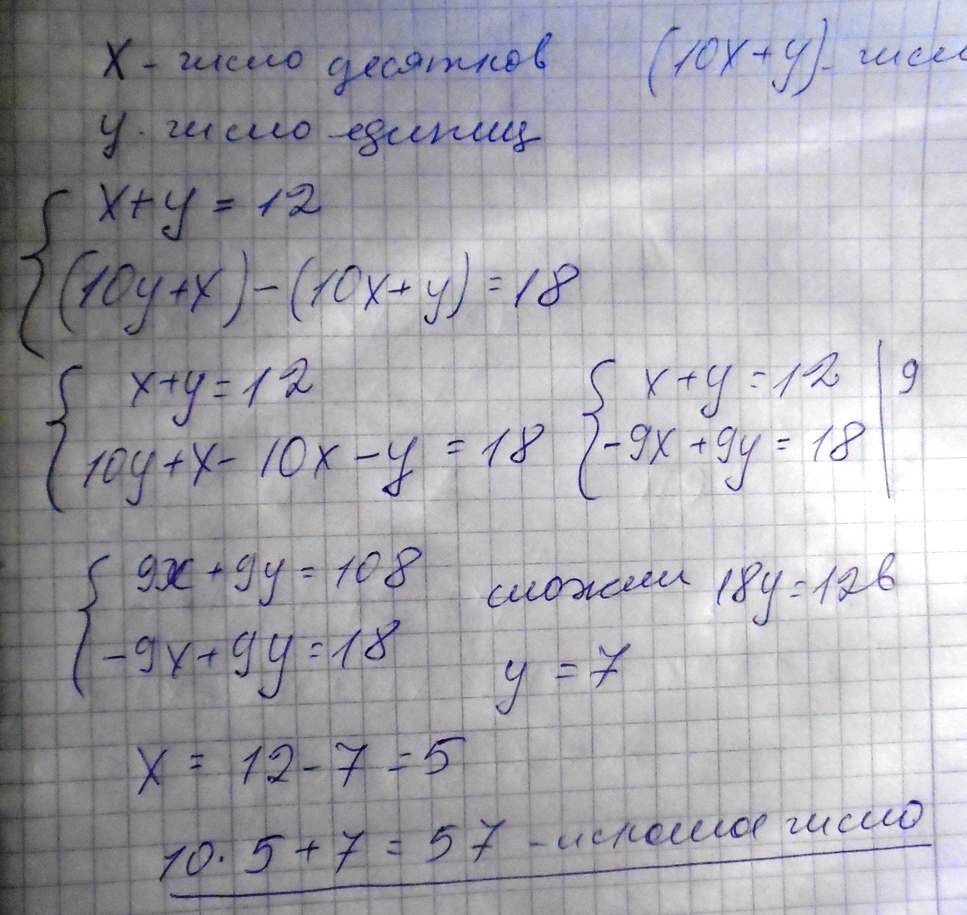 x - число десятков (10x+y) - число
y - число единиц
x+y = 12
(10y+x)-(10x+y) = 18
x+y=12
10y+x-10x-y = 18
x+y=12 | 9
-9x+9y=18
9x+9y=108
-9x+9y=18
сложим 18y=126
y = 7
x = 12-7=5
10·5+7=57 - искомое число